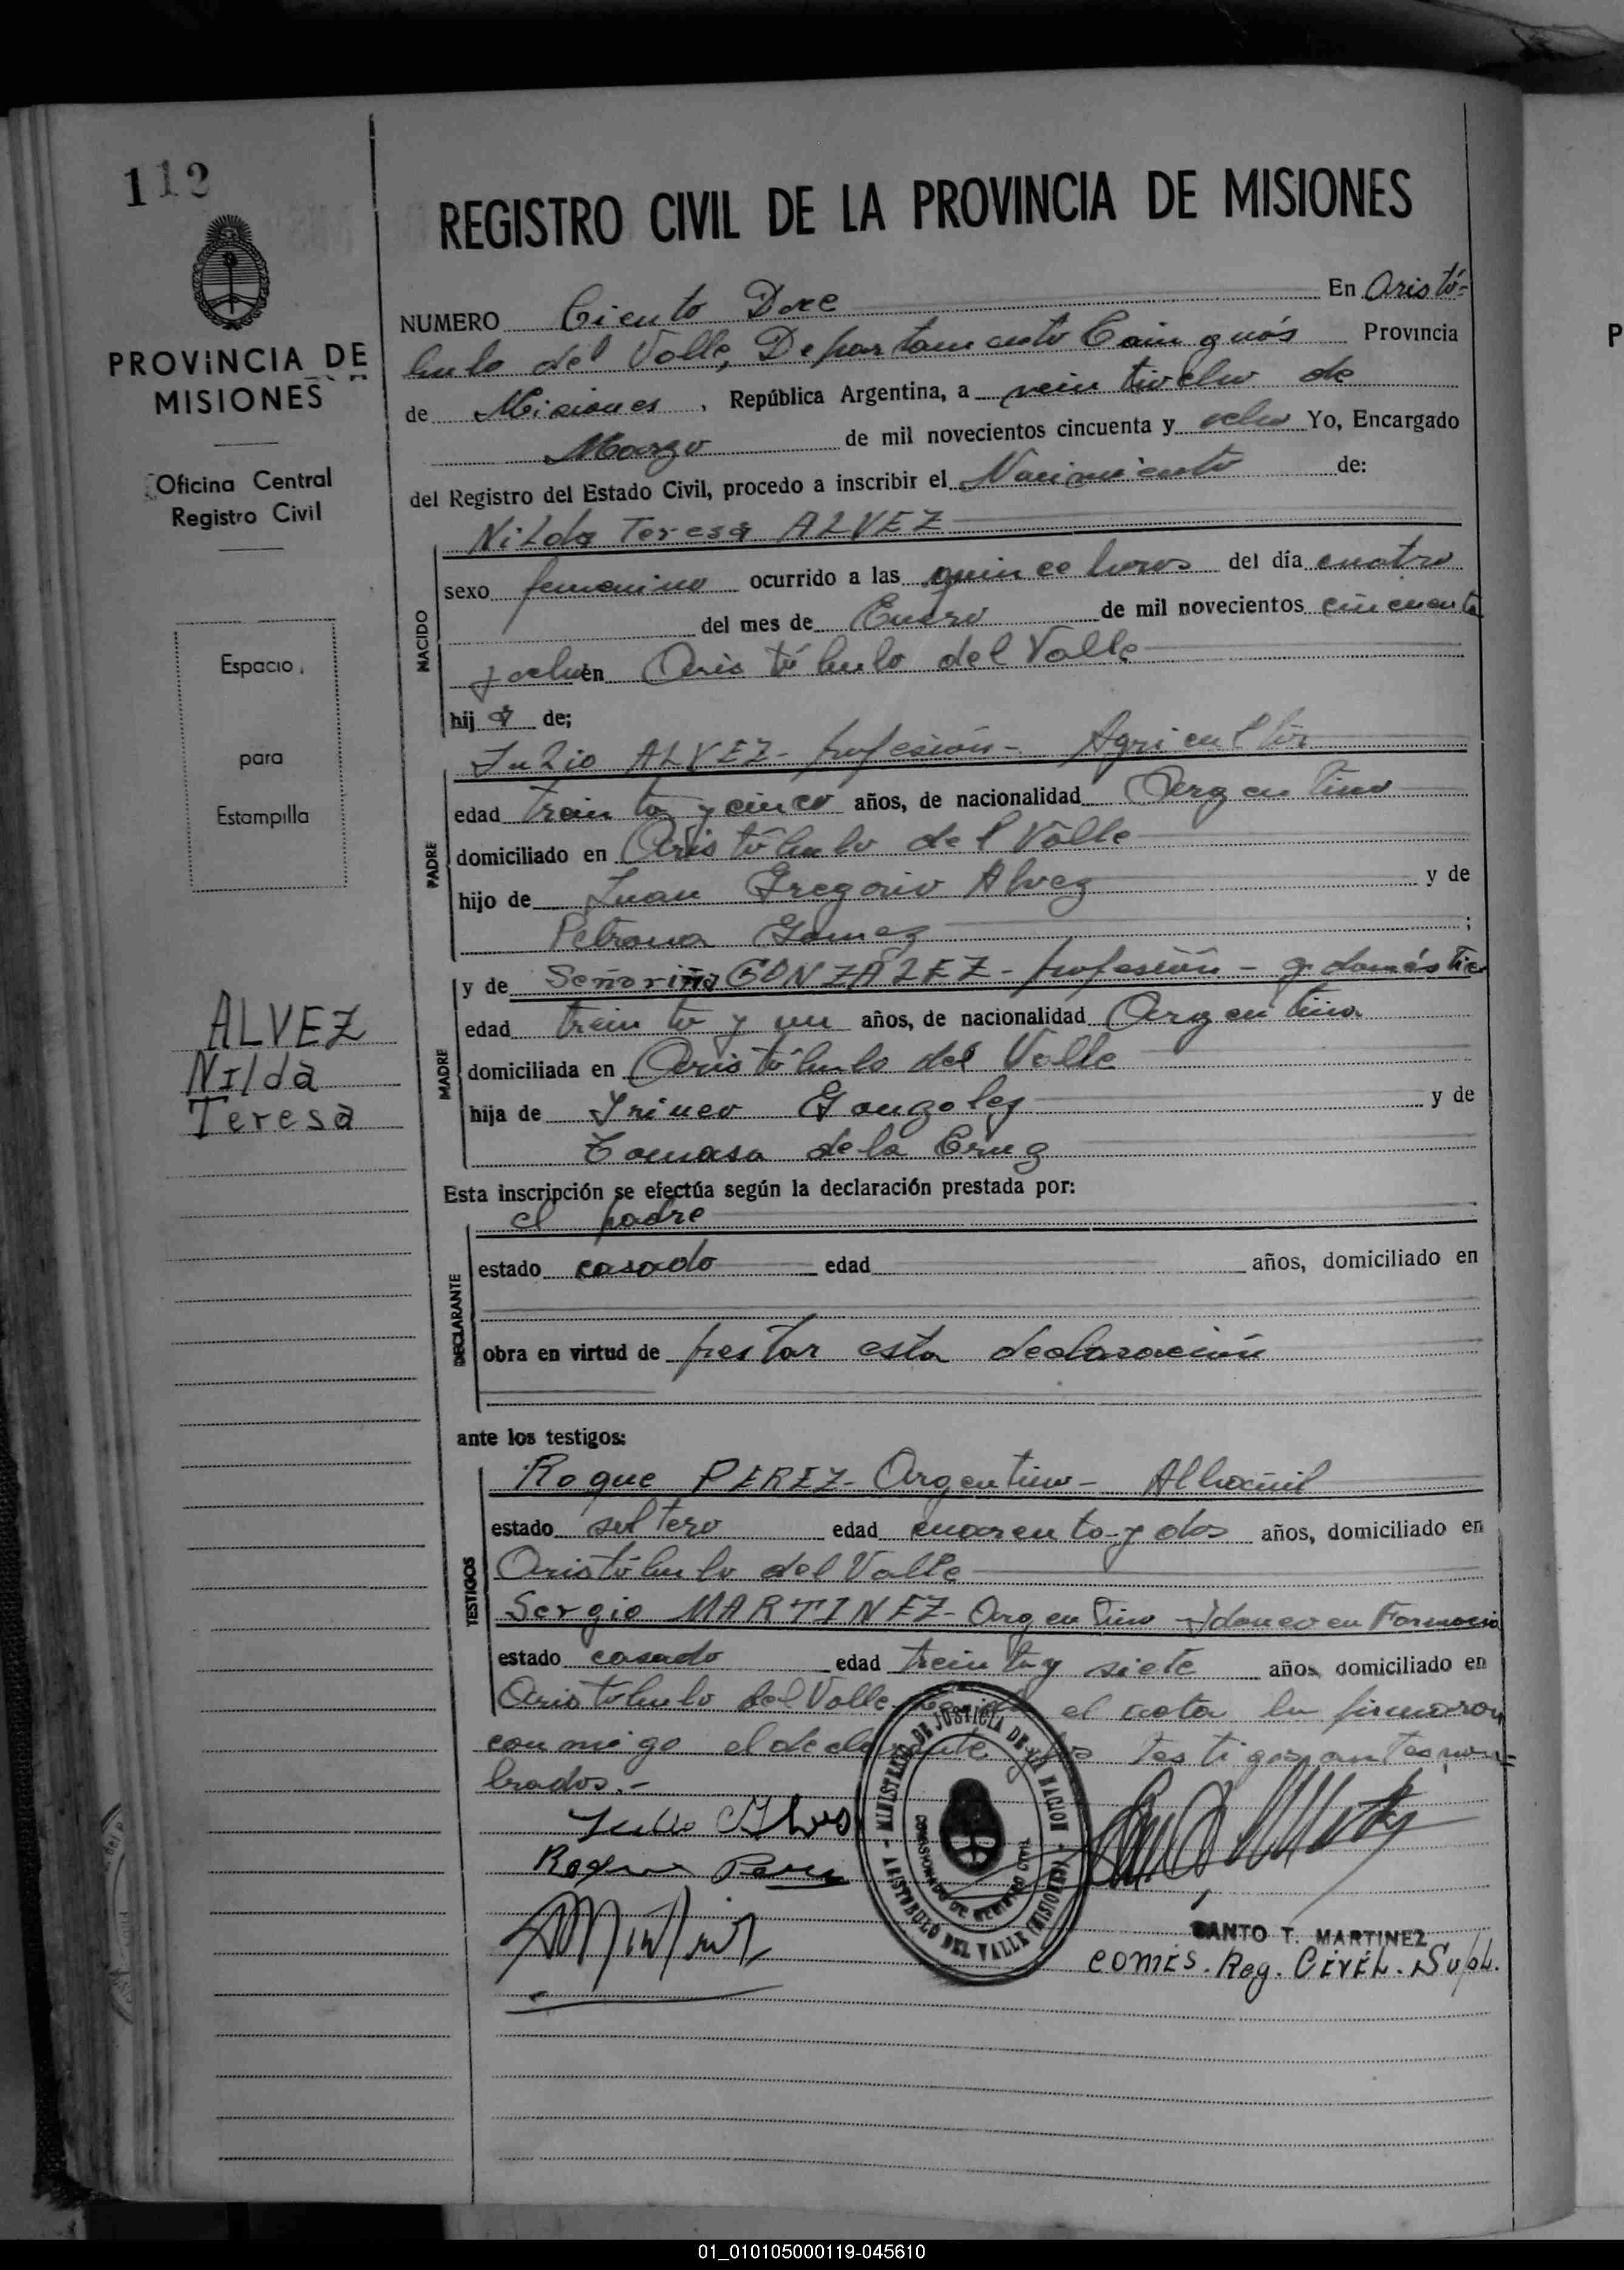 112
PROVINCIA DE
MISIONES
Oficina Central
Registro Civil
Espacio
para
Estampilla
ALVEZ
Nilda
Teresa
REGISTRO CIVIL DE LA PROVINCIA DE MISIONES
NUMERO Ciento Doce En Aristó-
bulo del Valle, Departamento Cainguás Provincia
de Misiones, República Argentina, a veintiocho de
Marzo de mil novecientos cincuenta y ocho Yo, Encargado
del Registro del Estado Civil, procedo a inscribir el Nacimiento de:
NACIDO
Nilda Teresa ALVEZ
sexo femenino ocurrido a las quince horas del día cuatro
del mes de Enero de mil novecientos cincuenta
y ocho en Aristóbulo del Valle
hij a de;
PADRE
Julio ALVEZ - profesión - Agricultor
edad treinta y cinco años, de nacionalidad Argentino
domiciliado en Aristóbulo del Valle
hijo de Juan Gregorio Alvez y de
Petrona Gomez ;
MADRE
y de Señoriña GONZALEZ - profesión - q. doméstica
edad treinta y un años, de nacionalidad Argentina
domiciliada en Aristóbulo del Valle
hija de Irineo Gonzalez y de
Tomasa de la Cruz
Esta inscripción se efectúa según la declaración prestada por:
DECLARANTE
el padre
estado casado edad años, domiciliado en
obra en virtud de prestar esta declaración
ante los testigos:
TESTIGOS
Roque PEREZ - Argentino - Albañil
estado soltero edad cuarenta y dos años, domiciliado en
Aristóbulo del Valle
Sergio MARTINEZ - Argentino - Idoneo en Farmacia
estado casado edad treinta y siete años, domiciliado en
Aristóbulo del Valle el acta la firmaron
conmigo el declarante y los testigos antes nom-
brados.-
Julio Alves
Roque Perez
MINISTERIO DE JUSTICIA DE LA NACION - ARISTOBULO DEL VALLE (MISIONES) -
COMISIONADO DE REGISTRO CIVIL
SANTO T. MARTINEZ
COMIS. Reg. CIVIL. Supl.
01_010105000119-045610